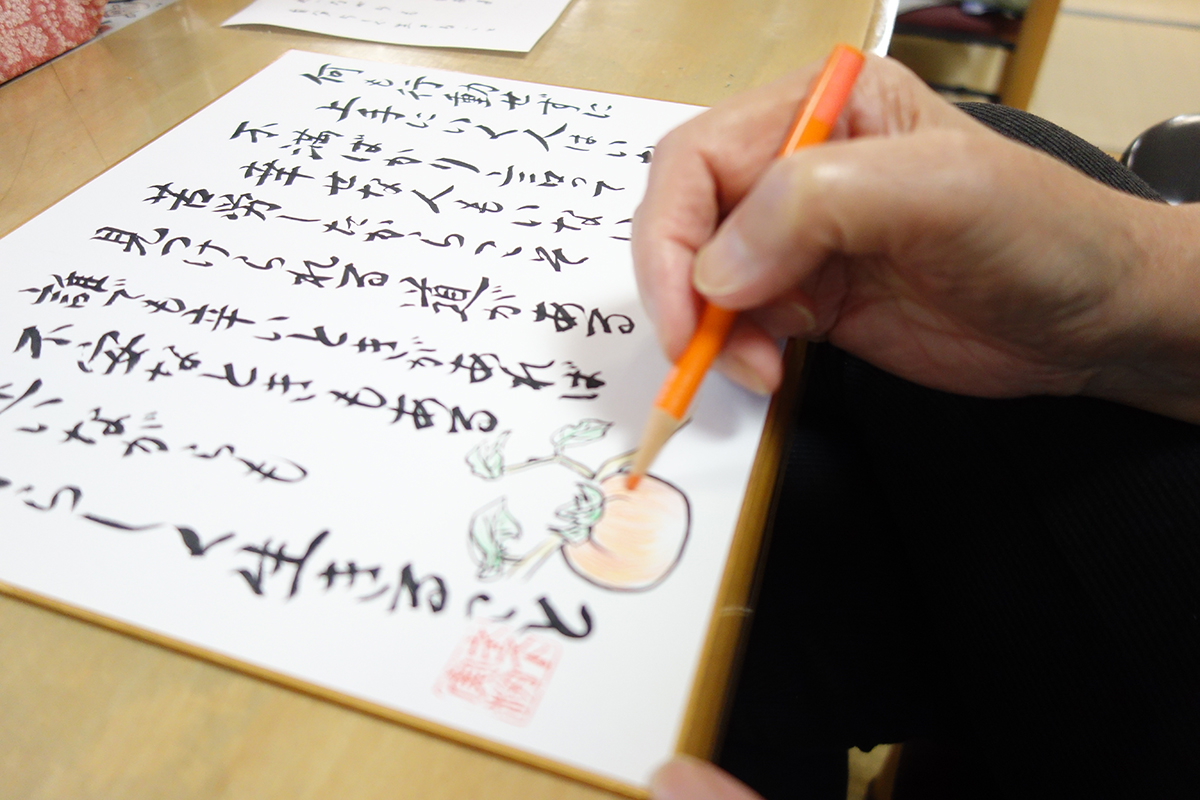 何も行動せずに
上手にいく人はい
不満ばかり言って
幸せな人もいない
苦労しながらこそ
見つけられる道がある
誰でも辛いときがあれば
不安なときもある
いながらも
らしく生きること